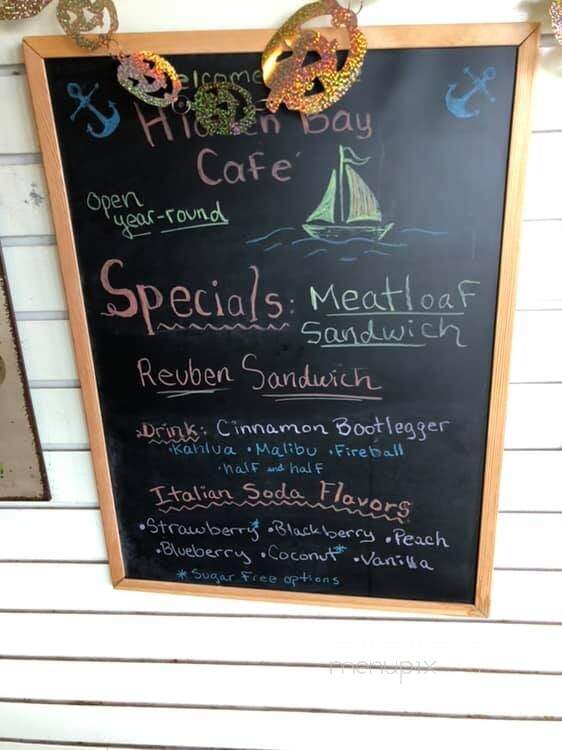 Welcome
Hidden Bay
Cafe
Open
year-round
Specials: Meatloaf
Sandwich
Reuben Sandwich
Drink: Cinnamon Bootlegger
•Kahlua •Malibu •Fireball
•half and half
Italian Soda Flavors
•Strawberry* •Blackberry •Peach
•Blueberry •Coconut* •Vanilla
*Sugar Free options
menupix